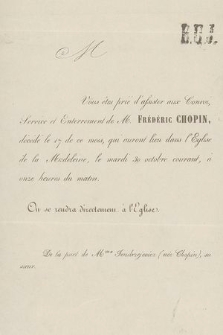 M
Vous êtes prié d'assister aux Convoi,
Service et Enterrement de M. FRÉDÉRIC CHOPIN,
décédé le 17 de ce mois, qui auront lieu dans l'Église
de la Madeleine, le mardi 30 octobre courant, à
onze heures du matin.
On se rendra directement à l'Église.
De la part de M^me Jendrzejewicz (née Chopin), sa
sœur.